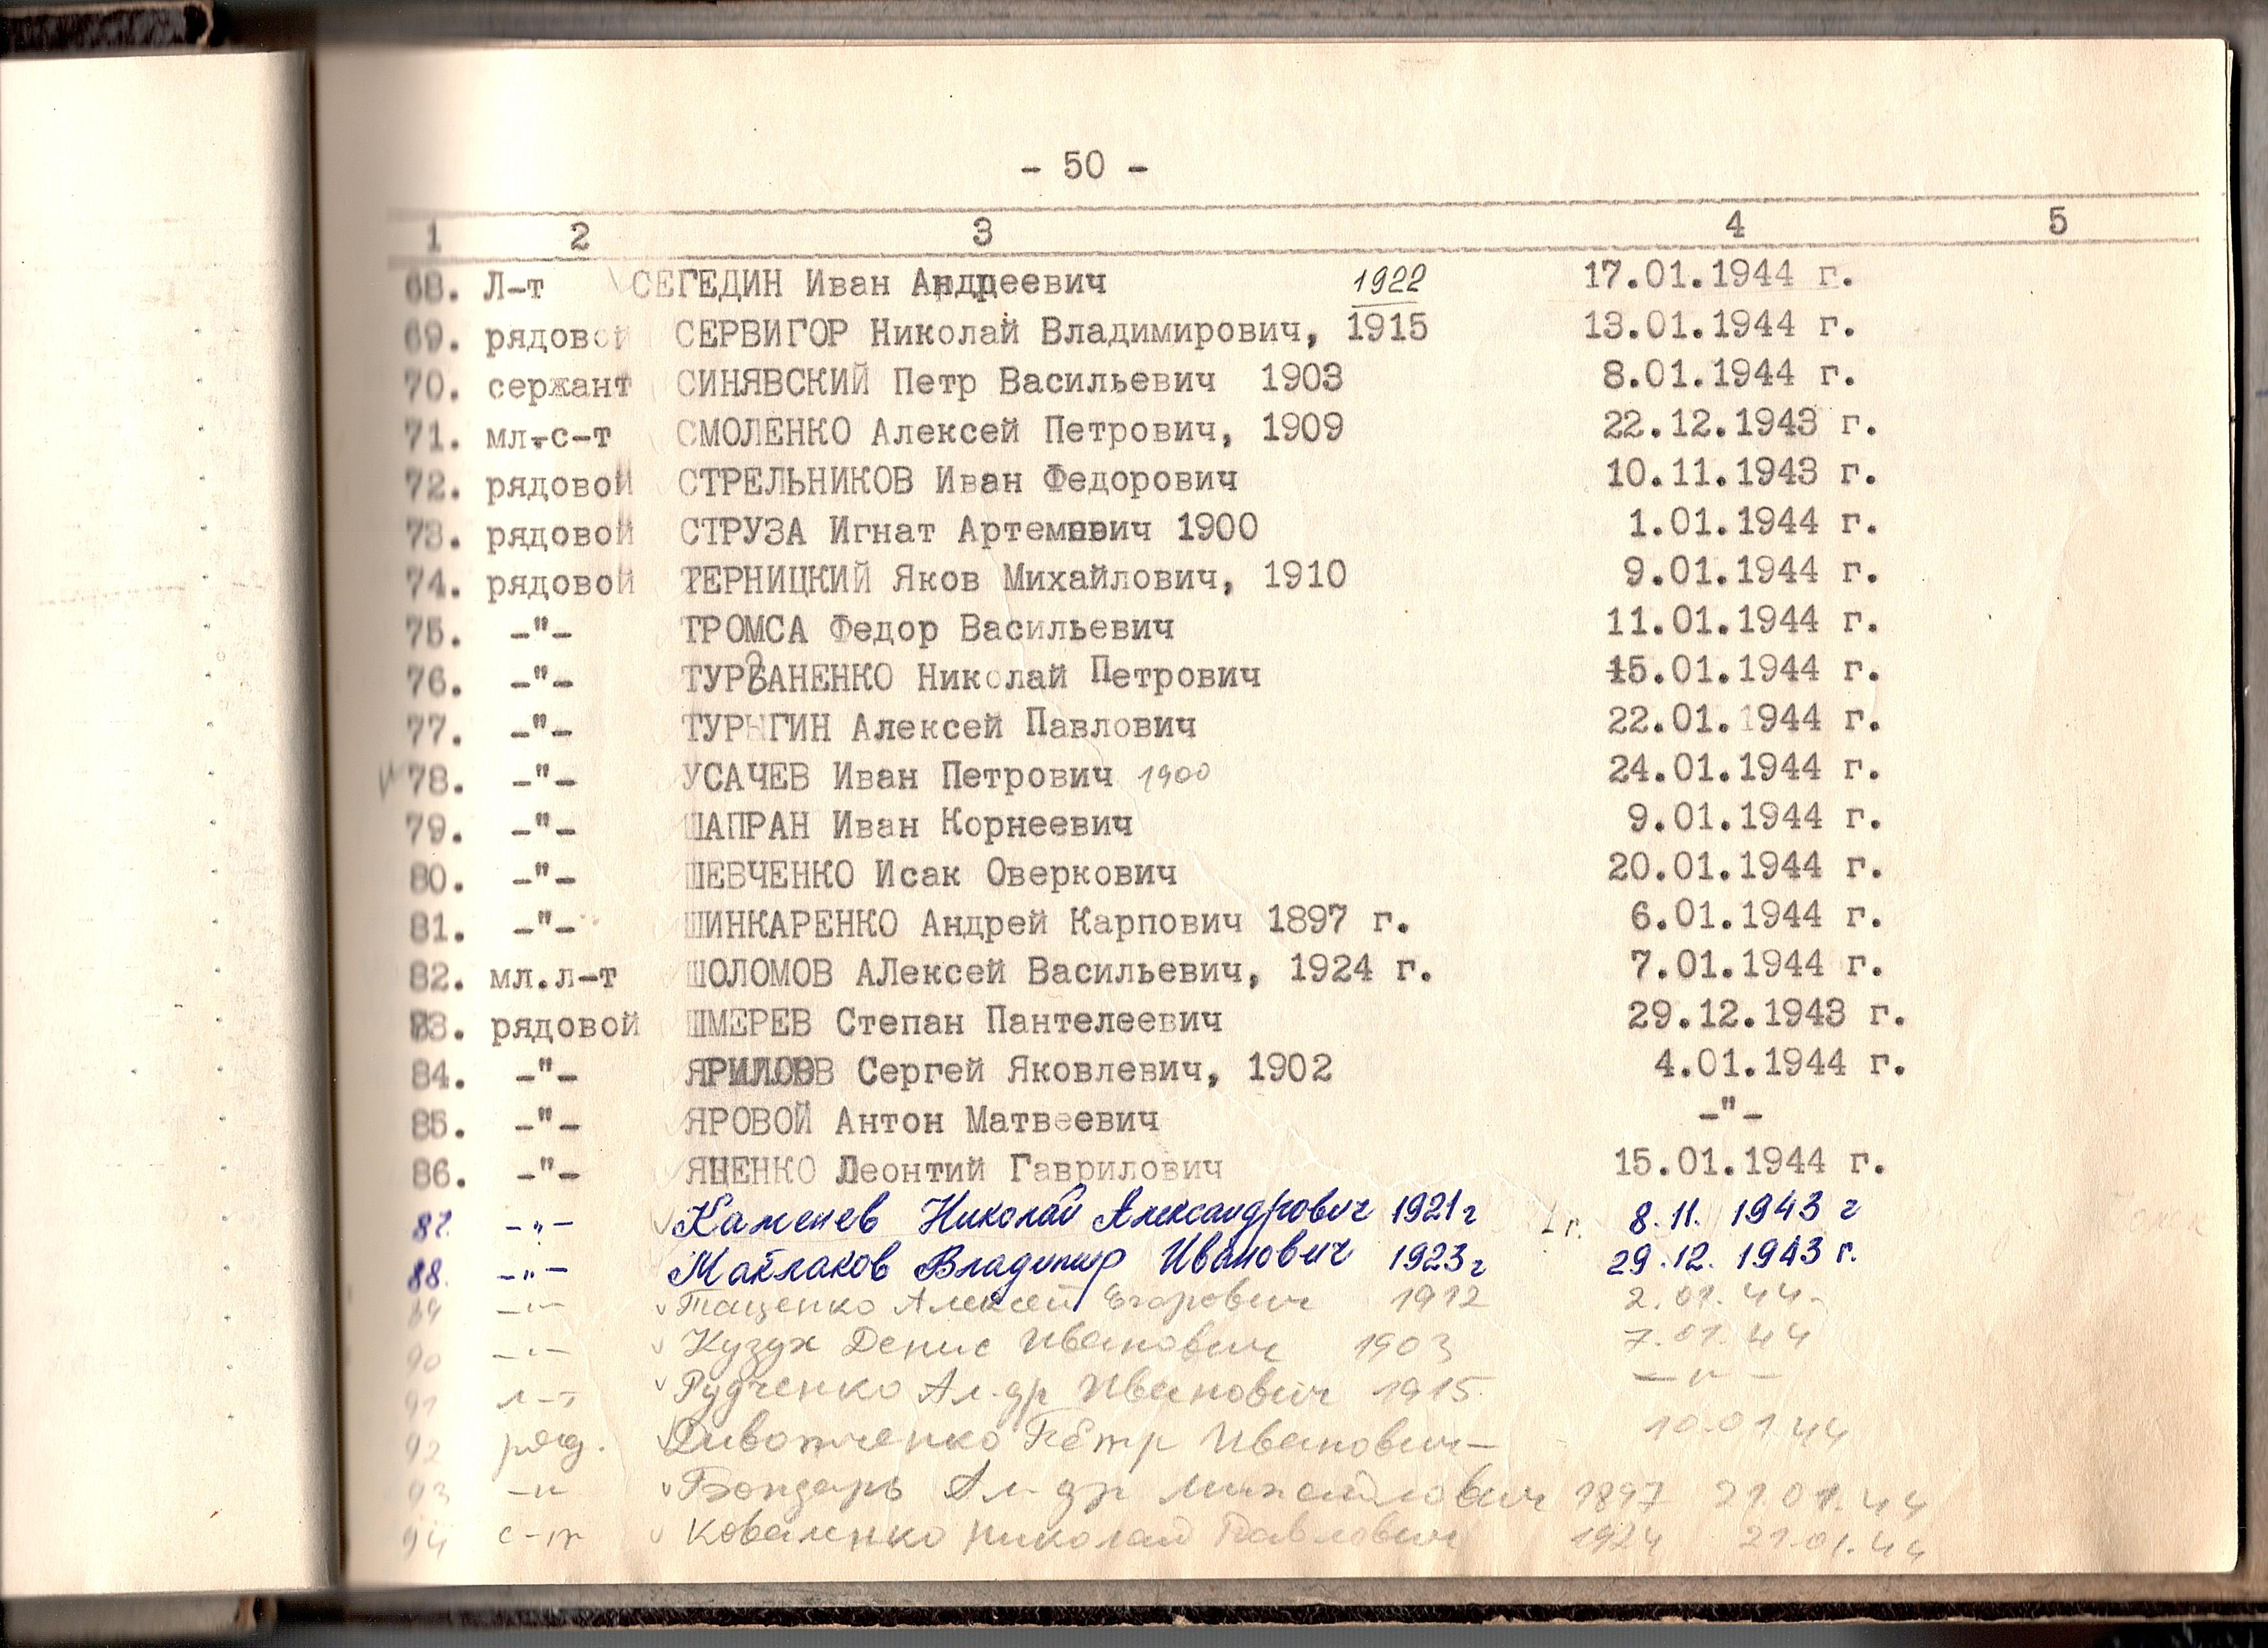 - 50 -
1 2 3 4 5
68. Л-т СЕГЕДИН Иван Андреевич 1922 17.01.1944 г.
69. рядовой СЕРВИГОР Николай Владимирович, 1915 13.01.1944 г.
70. сержант СИНЯВСКИЙ Петр Васильевич 1903 8.01.1944 г.
71. мл.с-т СМОЛЕНКО Алексей Петрович, 1909 22.12.1943 г.
72. рядовой СТРЕЛЬНИКОВ Иван Федорович 10.11.1943 г.
73. рядовой СТРУЗА Игнат Артемович 1900 1.01.1944 г.
74. рядовой ТЕРНИЦКИЙ Яков Михайлович, 1910 9.01.1944 г.
75. -"- ТРОМСА Федор Васильевич 11.01.1944 г.
76. -"- ТУРВАНЕНКО Николай Петрович 15.01.1944 г.
77. -"- ТУРЫГИН Алексей Павлович 22.01.1944 г.
78. -"- УСАЧЕВ Иван Петрович 1900 24.01.1944 г.
79. -"- ШАПРАН Иван Корнеевич 9.01.1944 г.
80. -"- ШЕВЧЕНКО Исак Оверкович 20.01.1944 г.
81. -"- ШИНКАРЕНКО Андрей Карпович 1897 г. 6.01.1944 г.
82. мл.л-т ШОЛОМОВ АЛексей Васильевич, 1924 г. 7.01.1944 г.
83. рядовой ШМЕРЕВ Степан Пантелеевич 29.12.1943 г.
84. -"- ЯРИЛОВ Сергей Яковлевич, 1902 4.01.1944 г.
85. -"- ЯРОВОЙ Антон Матвеевич -"-
86. -"- ЯЦЕНКО Леонтий Гаврилович 15.01.1944 г.
87. -"- Каменев Николай Александрович 1921 г 8.11. 1943 г
88. -"- Майлаков Владимир Иванович 1923 г 29.12. 1943 г.
89 -"- Тащенко Алексей Егорович 1912 2.01.44
90 -"- Кузух Денис Иванович 1903 7.01.44
91 л-т Рудченко Ал-др Иванович 1915 -"-
92 ряд. Пётр Иванович 10.01.44
93 -"- Бондарь Ал-др Михайлович 1897 21.01.44
94 с-т Коваленко Николай Павлович 1924 21.01.44